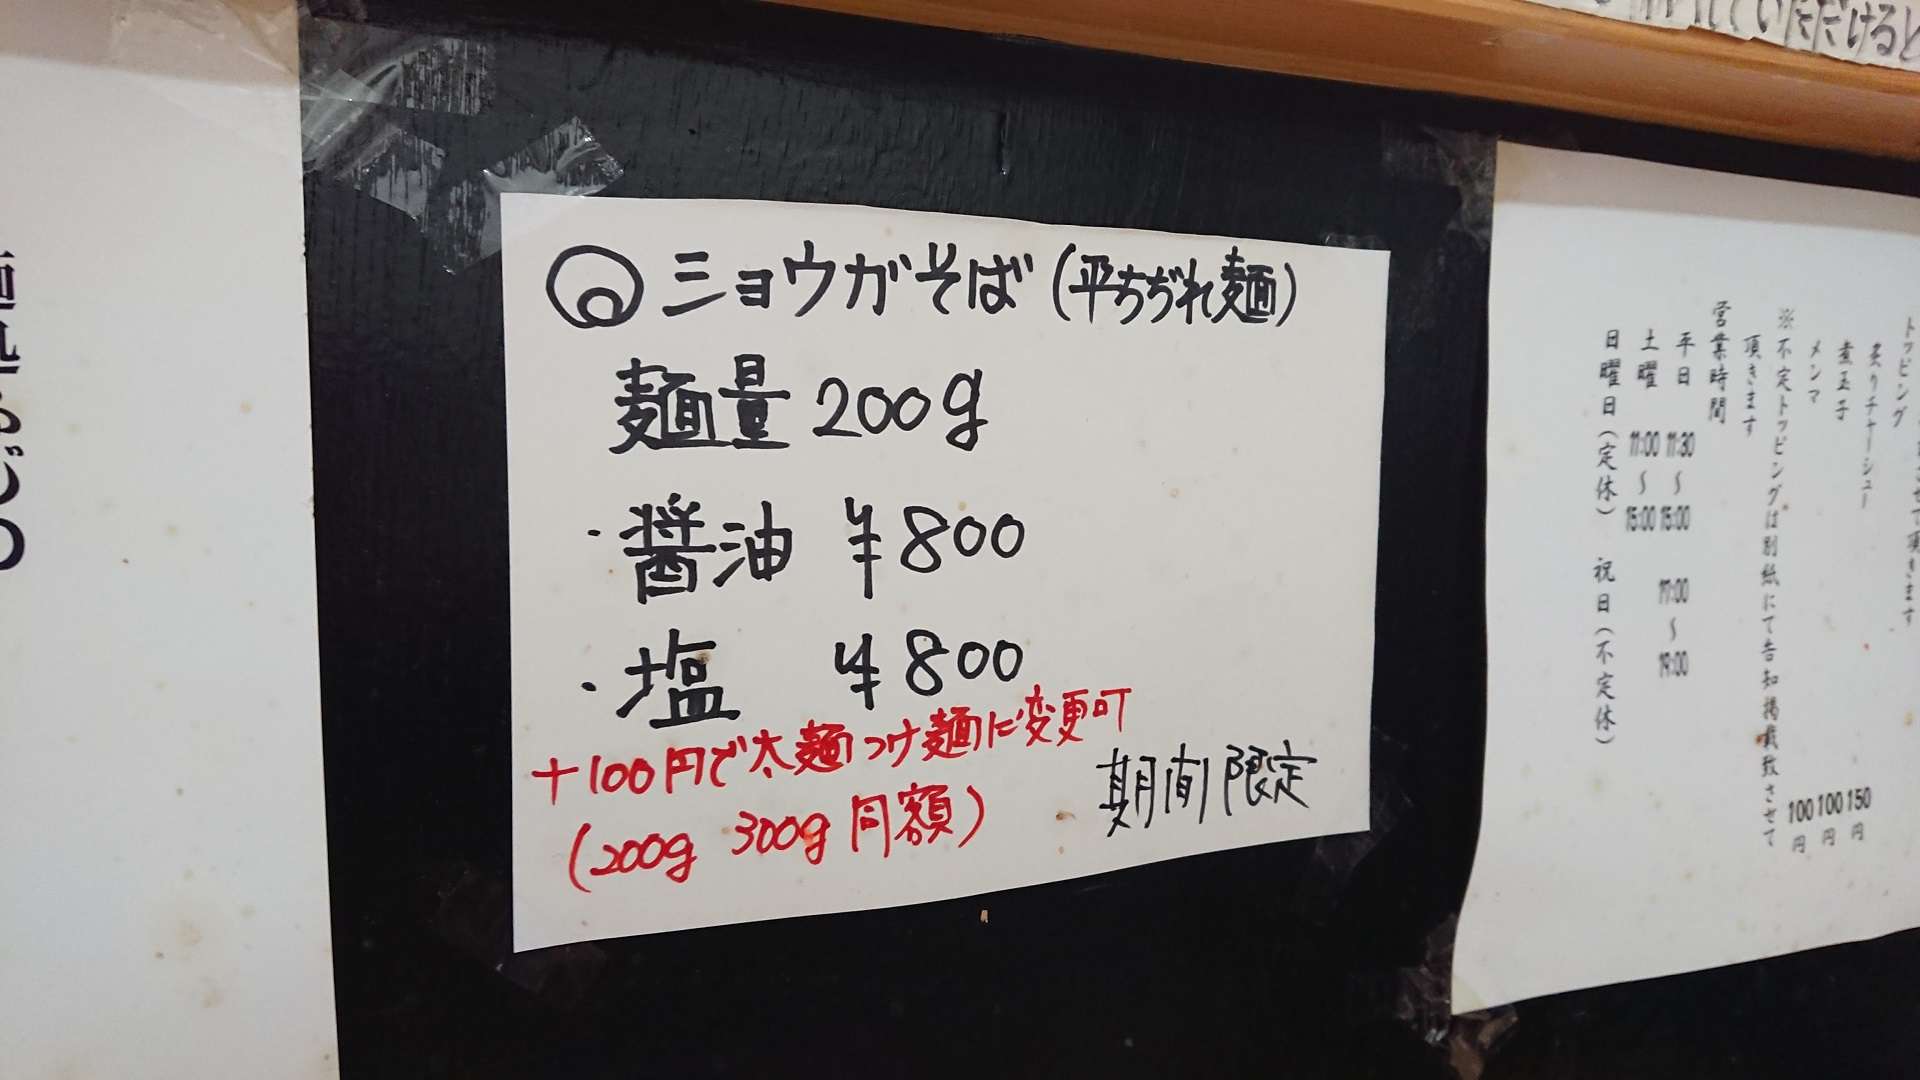 れていただけると
◎ショウガそば(平ちぢれ麺)
麺量 200g
・醤油 ¥800
・塩 ¥800
+100円で太麺つけ麺に変更可
(200g 300g 同額)
期間限定
トッピング
炙りチャーシュー 150円
煮玉子 100円
メンマ 100円
※不定トッピングは別紙にて告知掲載致させて
頂きます
営業時間
平日 11:30~15:00 17:00~19:00
土曜 11:00~15:00
日曜日(定休) 祝日(不定休)